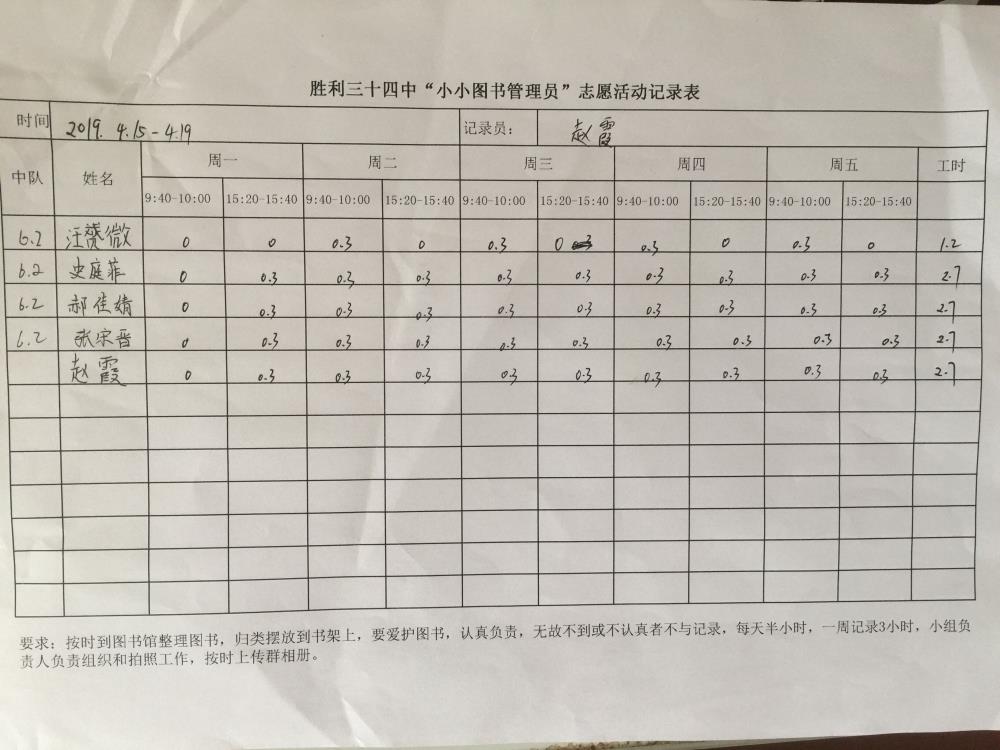 胜利三十四中“小小图书管理员”志愿活动记录表
时间 2019. 4.15-4.19 记录员: 赵霞
中队 姓名 周一 周二 周三 周四 周五 工时
9:40-10:00 15:20-15:40 9:40-10:00 15:20-15:40 9:40-10:00 15:20-15:40 9:40-10:00 15:20-15:40 9:40-10:00 15:20-15:40
6.2 汪赟微 0 0 0.3 0 0.3 0 0.3 0 0.3 0 1.2
6.2 史庭菲 0 0.3 0.3 0.3 0.3 0.3 0.3 0.3 0.3 0.3 2.7
6.2 郝佳婧 0 0.3 0.3 0.3 0.3 0.3 0.3 0.3 0.3 0.3 2.7
6.2 张宋晋 0 0.3 0.3 0.3 0.3 0.3 0.3 0.3 0.3 0.3 2.7
赵霞 0 0.3 0.3 0.3 0.3 0.3 0.3 0.3 0.3 0.3 2.7
要求:按时到图书馆整理图书,归类摆放到书架上,要爱护图书,认真负责,无故不到或不认真者不与记录,每天半小时,一周记录3小时,小组负
责人负责组织和拍照工作,按时上传群相册。